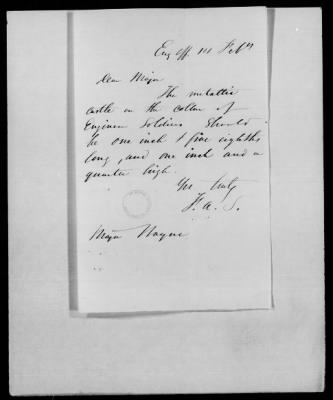 Eng off. Feby
Dear Major
The metallic
castle on the collar of
Engineer Soldiers should
be one inch & five eighths
long, and one inch and a
quarter high.
Yrs truly
F. A. S.
Major Wayne